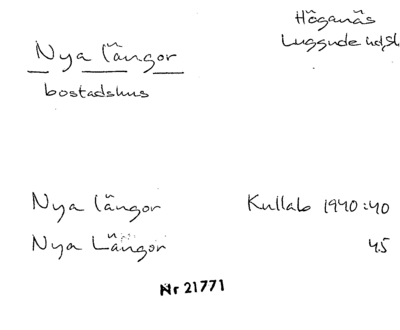 Höganäs
Luggude hd, Sk
Nya längor
bostadshus
Nya längor Kullab 1940:40
Nya Längor 45
Nr 21771